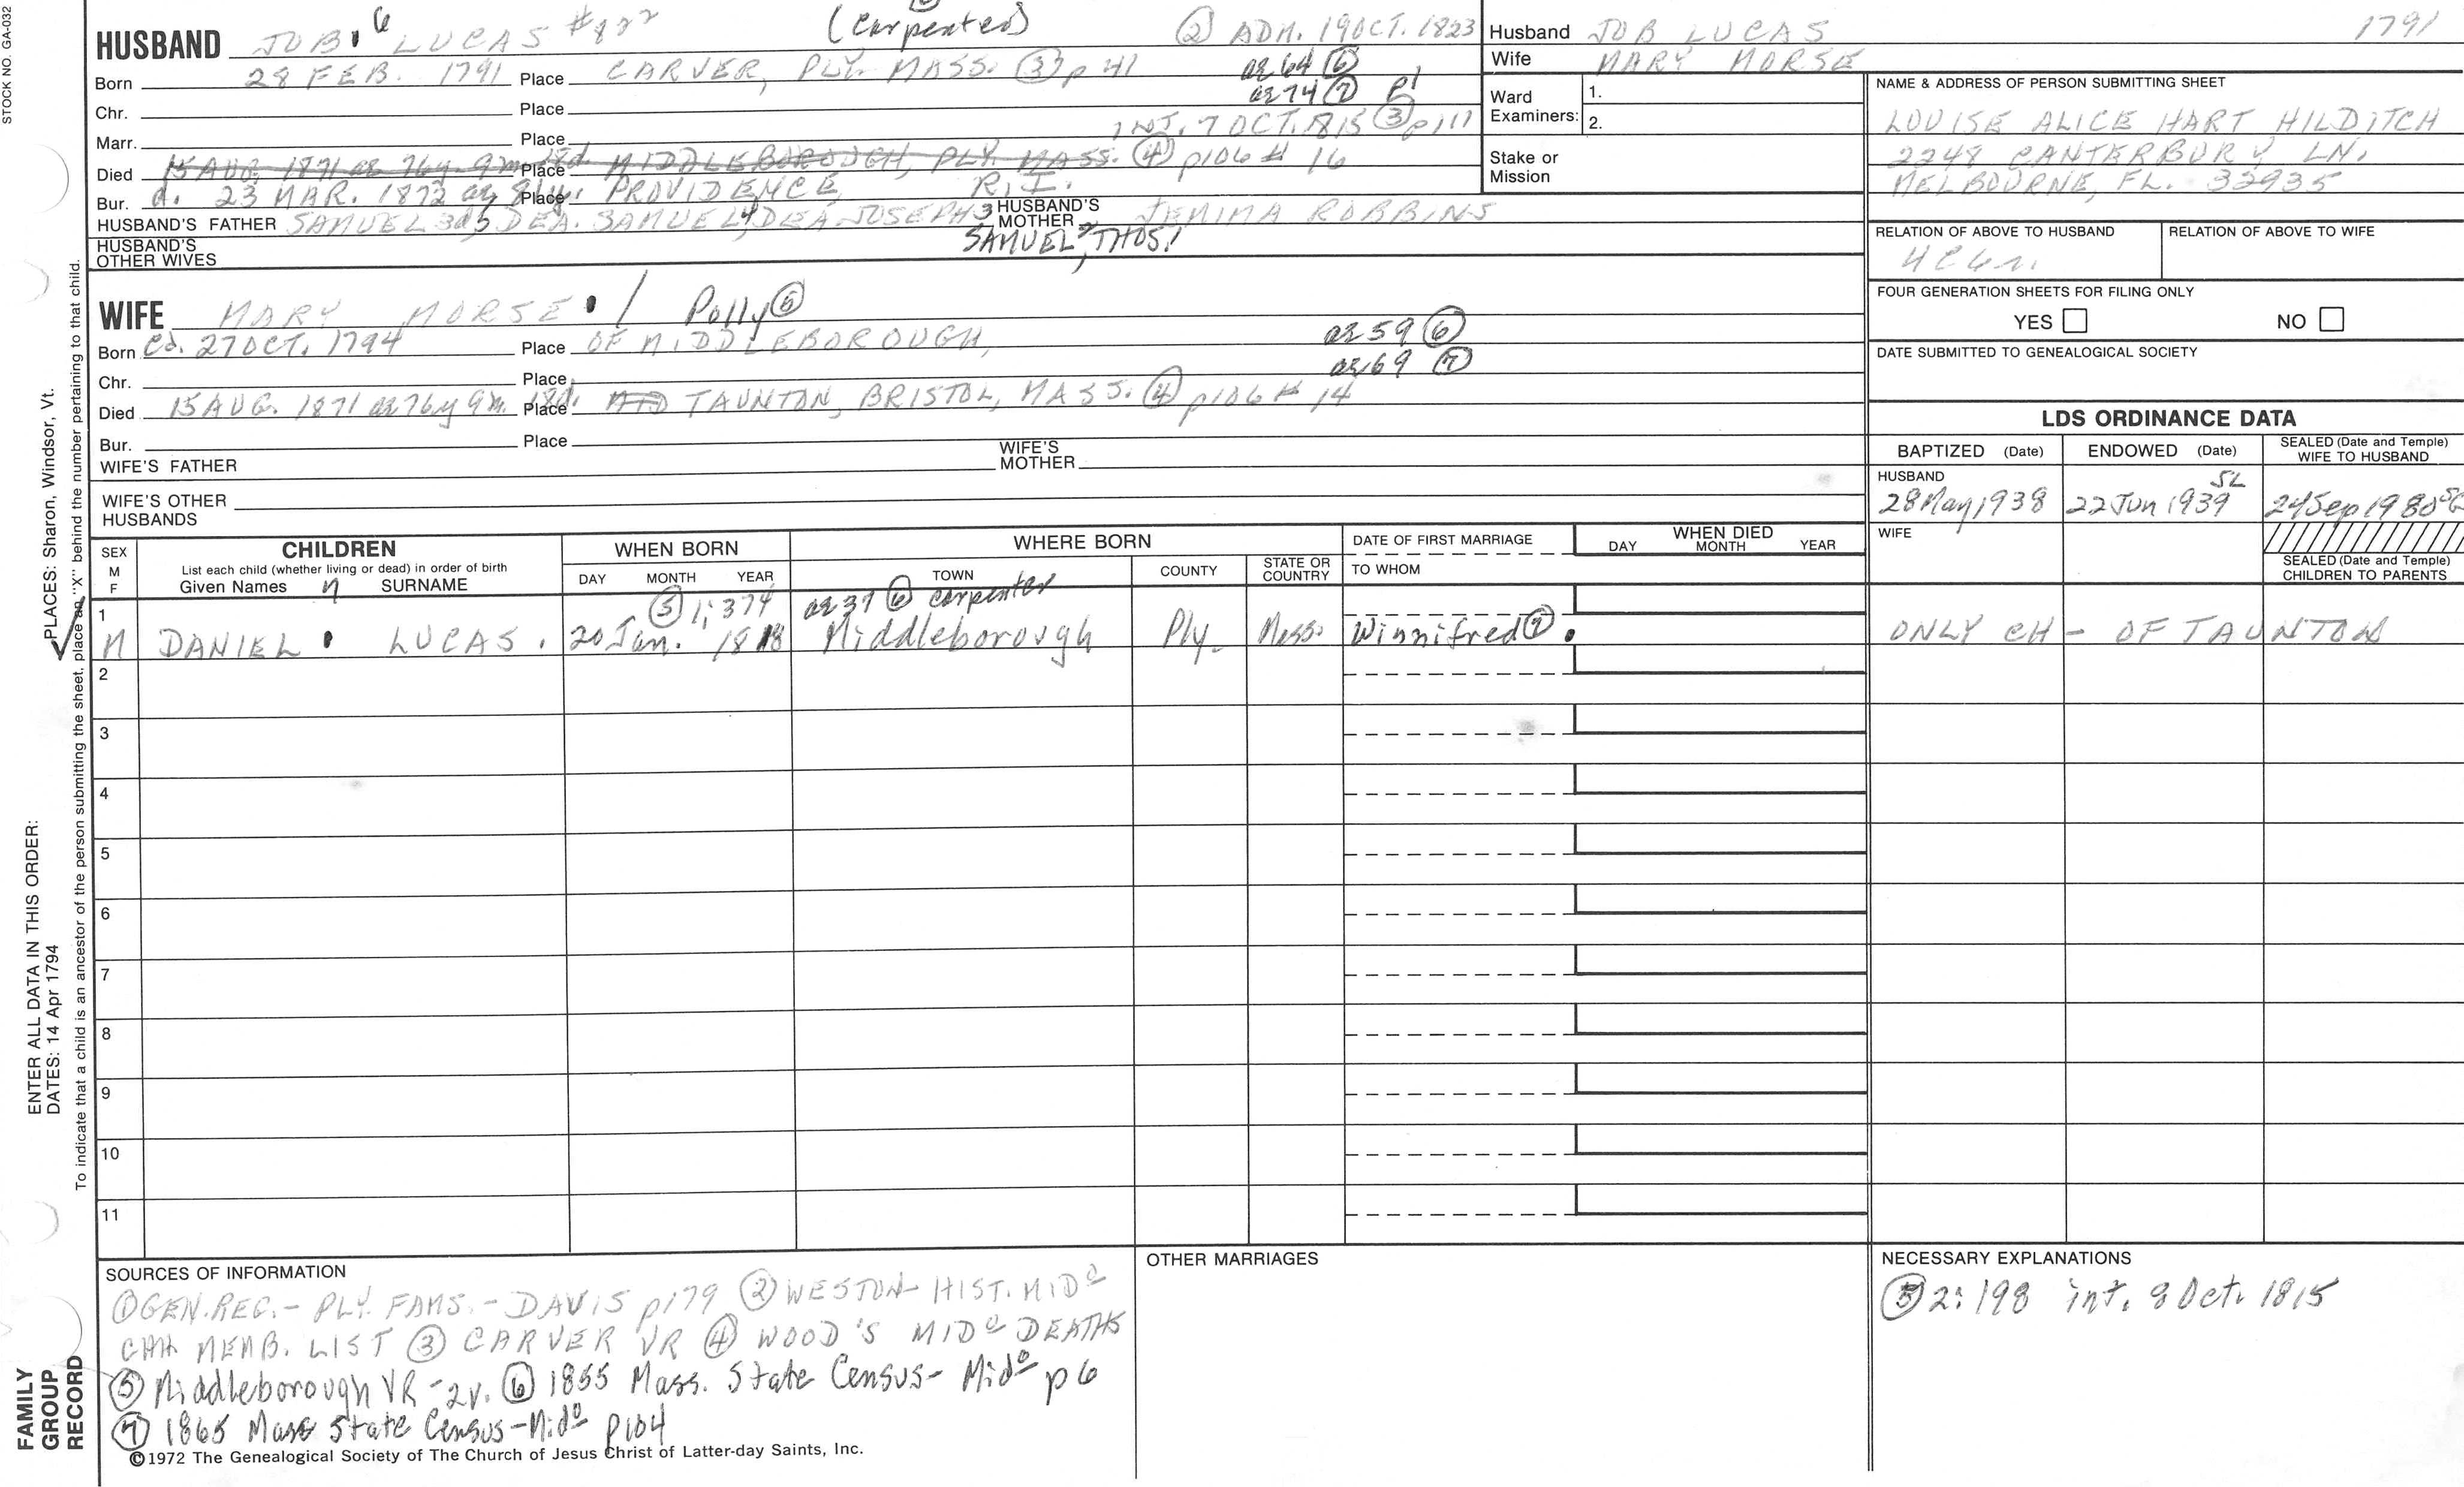 STOCK NO. GA-032
HUSBAND JOB 6 LUCAS #822 (Carpenter) ② ADM. 19 OCT. 1823
Born 28 FEB. 1791 Place CARVER, PLY. MASS. ③ p 41 ae 64 ⑥
Chr. Place ae 74 ⑦ p1
Marr. Place INT. 7 OCT. 1815 ③ p111
Died 15 AUG. 1871 ae 76y. 9m. 18d. Place MIDDLEBOROUGH, PLY. MASS. ④ p106 # 16
Bur. d. 23 MAR. 1872 ae 81y. Place PROVIDENCE, R.I.
HUSBAND'S FATHER SAMUEL 3d 5, DEA. SAMUEL 4, DEA. JOSEPH 3 HUSBAND'S MOTHER JEMIMA ROBBINS
SAMUEL 2, THOS. 1
HUSBAND'S OTHER WIVES
WIFE MARY MORSE 1 Polly ⑤
Born cd. 27 OCT. 1794 Place OF MIDDLEBOROUGH, ae 59 ⑥
ae 69 ⑦
Chr. Place
Died 15 AUG. 1871 ae 76y 9m. 18d. Place MID TAUNTON, BRISTOL, MASS. ④ p106 # 14
Bur. Place
WIFE'S FATHER WIFE'S MOTHER
WIFE'S OTHER HUSBANDS
Husband JOB LUCAS 1791
Wife MARY MORSE
Ward Examiners: 1.
2.
Stake or Mission
NAME & ADDRESS OF PERSON SUBMITTING SHEET
LOUISE ALICE HART HILDITCH
2248 CANTERBURY LN.
MELBOURNE, FL. 32935
RELATION OF ABOVE TO HUSBAND RELATION OF ABOVE TO WIFE
FOUR GENERATION SHEETS FOR FILING ONLY
YES NO
DATE SUBMITTED TO GENEALOGICAL SOCIETY
LDS ORDINANCE DATA
BAPTIZED (Date) ENDOWED (Date) SEALED (Date and Temple) WIFE TO HUSBAND
HUSBAND SL
28 May 1938 22 Jun 1939 24 Sep 1980
WIFE
SEALED (Date and Temple)
CHILDREN TO PARENTS
SEX M F
CHILDREN
List each child (whether living or dead) in order of birth
Given Names 7 SURNAME
WHEN BORN
DAY MONTH YEAR
WHERE BORN
TOWN COUNTY STATE OR COUNTRY
DATE OF FIRST MARRIAGE
TO WHOM
WHEN DIED
DAY MONTH YEAR
1 ⑤ 1; 374 ae 37 ⑥ carpenter
M DANIEL LUCAS. 20 Jan. 1818 Middleborough Ply. Mass. Winnifred ⑦. ONLY CH - OF TAUNTON
2
3
4
5
6
7
8
9
10
11
SOURCES OF INFORMATION
① GEN. REG. - PLY. FAMS. - DAVIS p179 ② WESTON - HIST. MIDO
CHH MEMB. LIST ③ CARVER VR ④ WOOD'S MIDO DEATHS
⑤ Middleborough VR - 2v. ⑥ 1855 Mass. State Census - Mido p 6
⑦ 1865 Mass State Census - Mido p104
OTHER MARRIAGES
NECESSARY EXPLANATIONS
⑤ 2: 198 int. 8 Oct. 1815
©1972 The Genealogical Society of The Church of Jesus Christ of Latter-day Saints, Inc.
FAMILY GROUP RECORD
ENTER ALL DATA IN THIS ORDER:
DATES: 14 Apr 1794
PLACES: Sharon, Windsor, Vt.
To indicate that a child is an ancestor of the person submitting the sheet, place an "X" behind the number pertaining to that child.